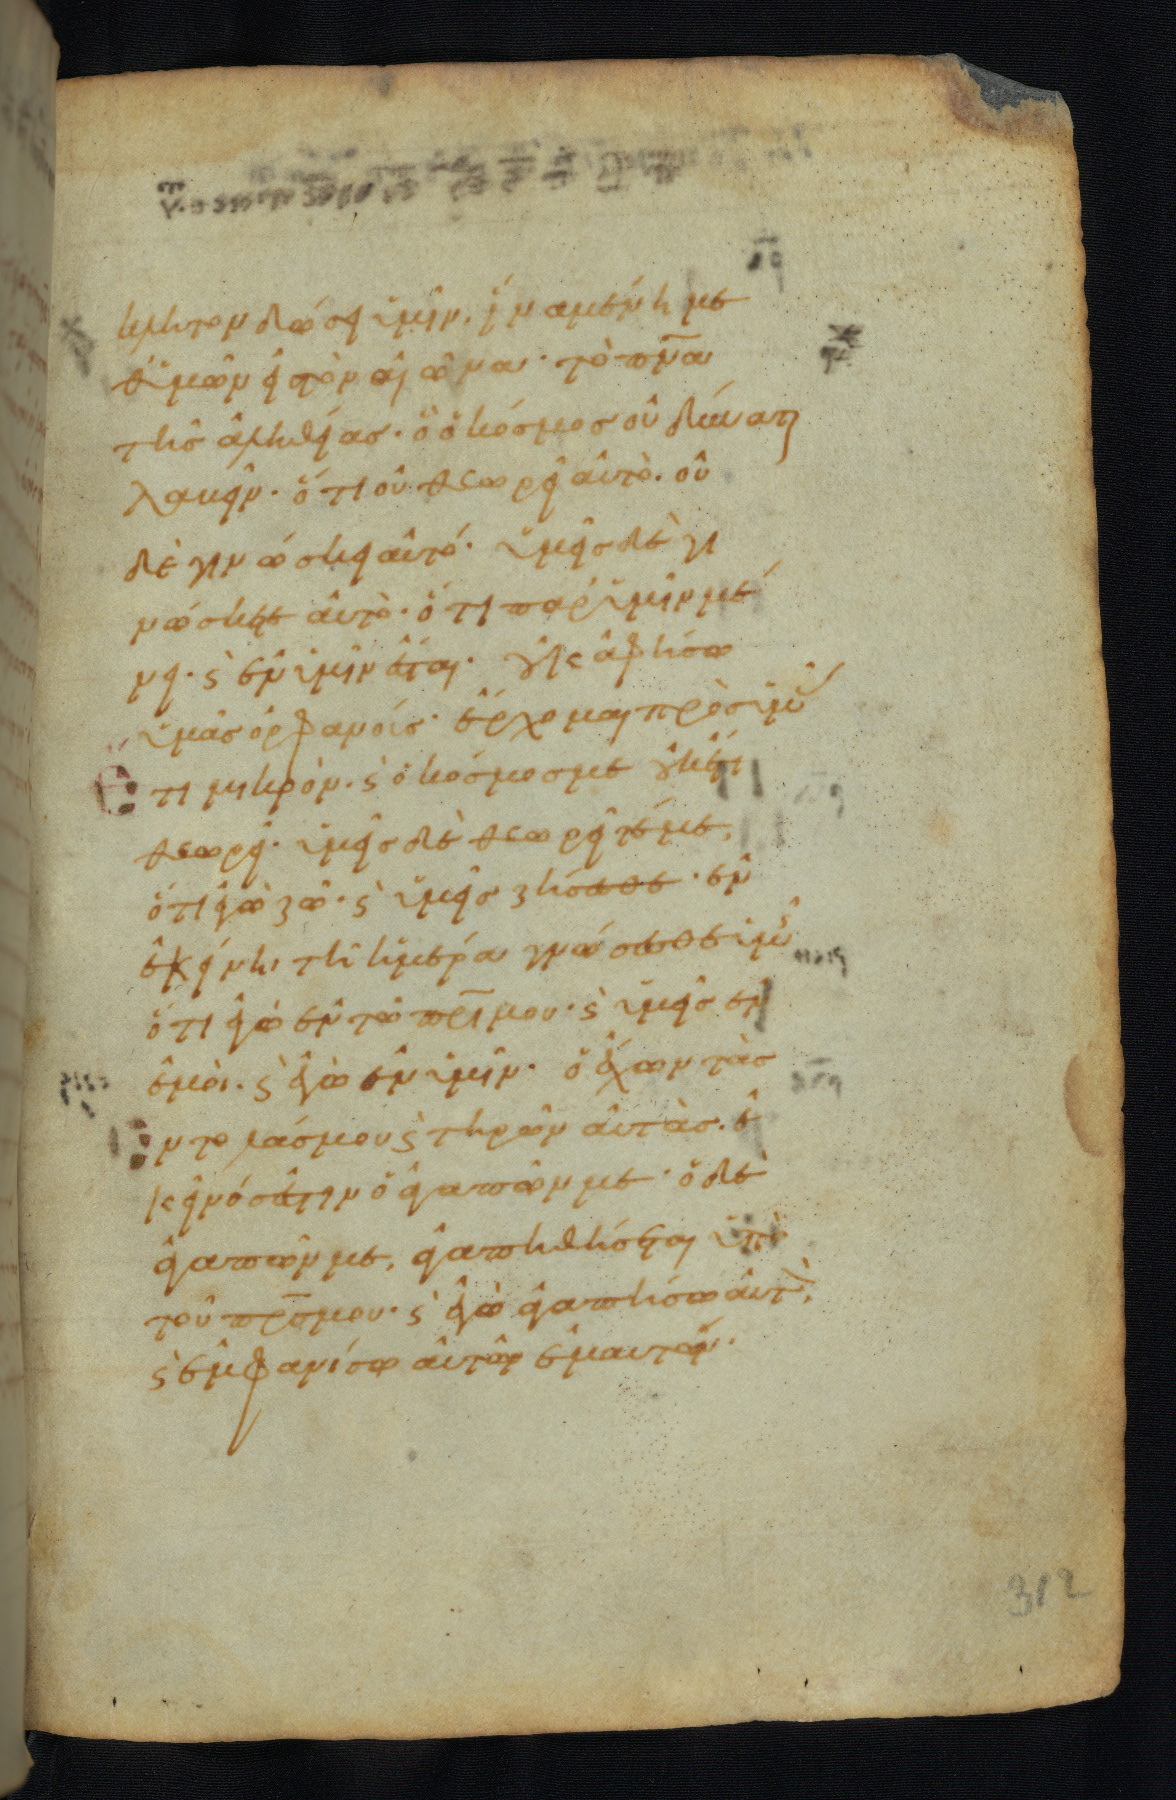 κλητον δώσει ὑμῖν. ἵνα μένη με
θ ὑμῶν εἰς τὸν αἰῶνα· τὸ πν̅α
τῆς ἀληθείας· ὃ ὁ κόσμος οὐ δύναται
λαβεῖν· ὅτι οὐ θεωρεῖ αὐτὸ. οὐ
δὲ γινώσκει αὐτό· ὑμεῖς δὲ γι
νώσκετε αὐτὸ· ὅτι παρ ὑμῖν μέ
νει· ϛ ἐν ὑμῖν ἔσται· οὐκ ἀφήσω
ὑμᾶς ὀρφανούς· ἔρχομαι πρὸς ὑμᾶς
Ἔτι μικρὸν· ϛ ὁ κόσμος με οὐκέτι
θεωρεῖ· ὑμεῖς δὲ θεωρεῖτέ με.
ὅτι ἐγὼ ζῶ· ϛ ὑμεῖς ζήσεσθε· ἐν
ἐκείνη τῆ ἡμέρα γνώσεσθε ὑμεῖς
ὅτι ἐγὼ ἐν τῶ πρ̅ι μου· ϛ ὑμεῖς ἐν
ἐμοὶ· ϛ ἐγὼ ἐν ὑμῖν· ὁ ἔχων τὰς
ἐντολάς μου ϛ τηρῶν αὐτὰς. ἐ
κεῖνός ἐστιν ὁ ἀγαπῶν με· ὁ δὲ
ἀγαπῶν με, ἀγαπηθήσεται ὑπὸ
τοῦ πρ̅ς μου· ϛ ἐγὼ ἀγαπήσω αὐτὸν,
ϛ ἐμφανίσω αὐτῶ ἐμαυτόν·
312